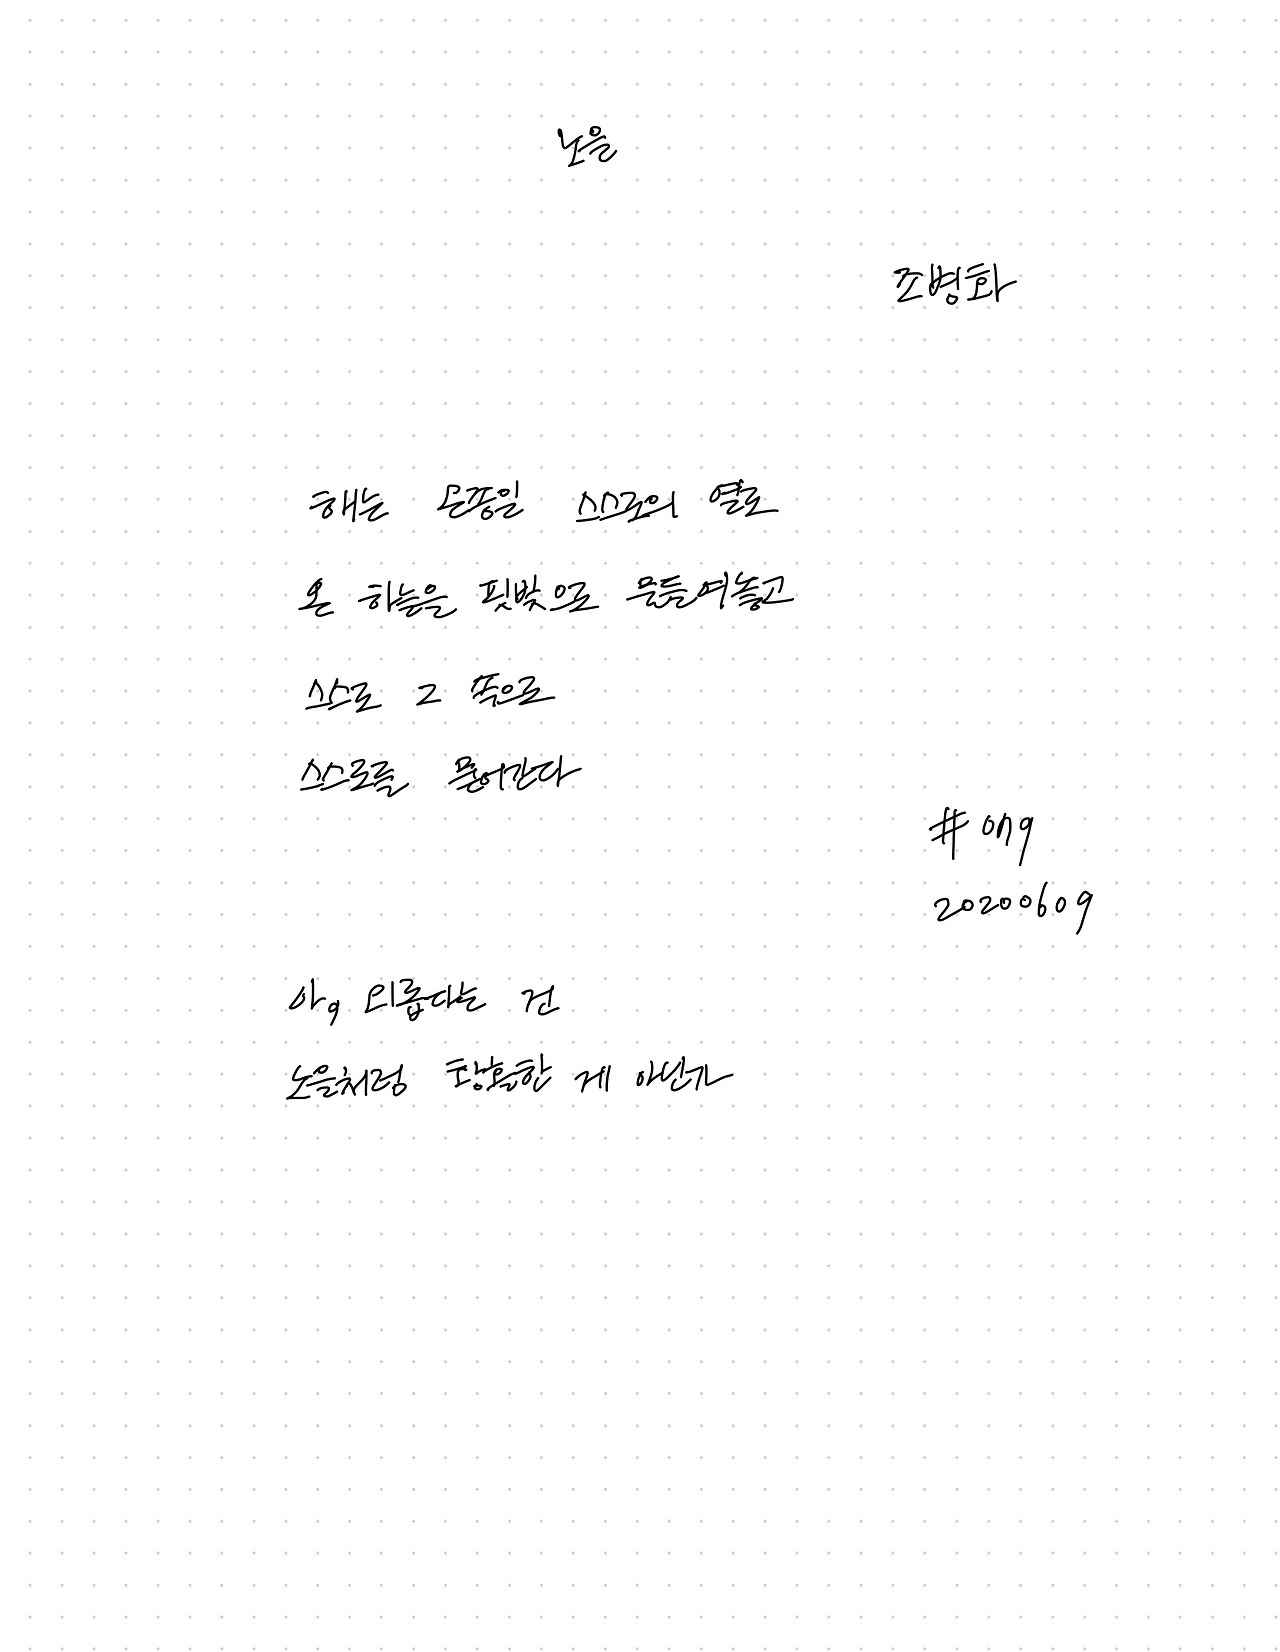 노을
조병화
해는 온종일 스스로의 열로
온 하늘을 핏빛으로 물들여놓고
스스로 그 속으로
스스로를 묻어간다
# 079
20200609
아, 외롭다는 건
노을처럼 황홀한 게 아닌가